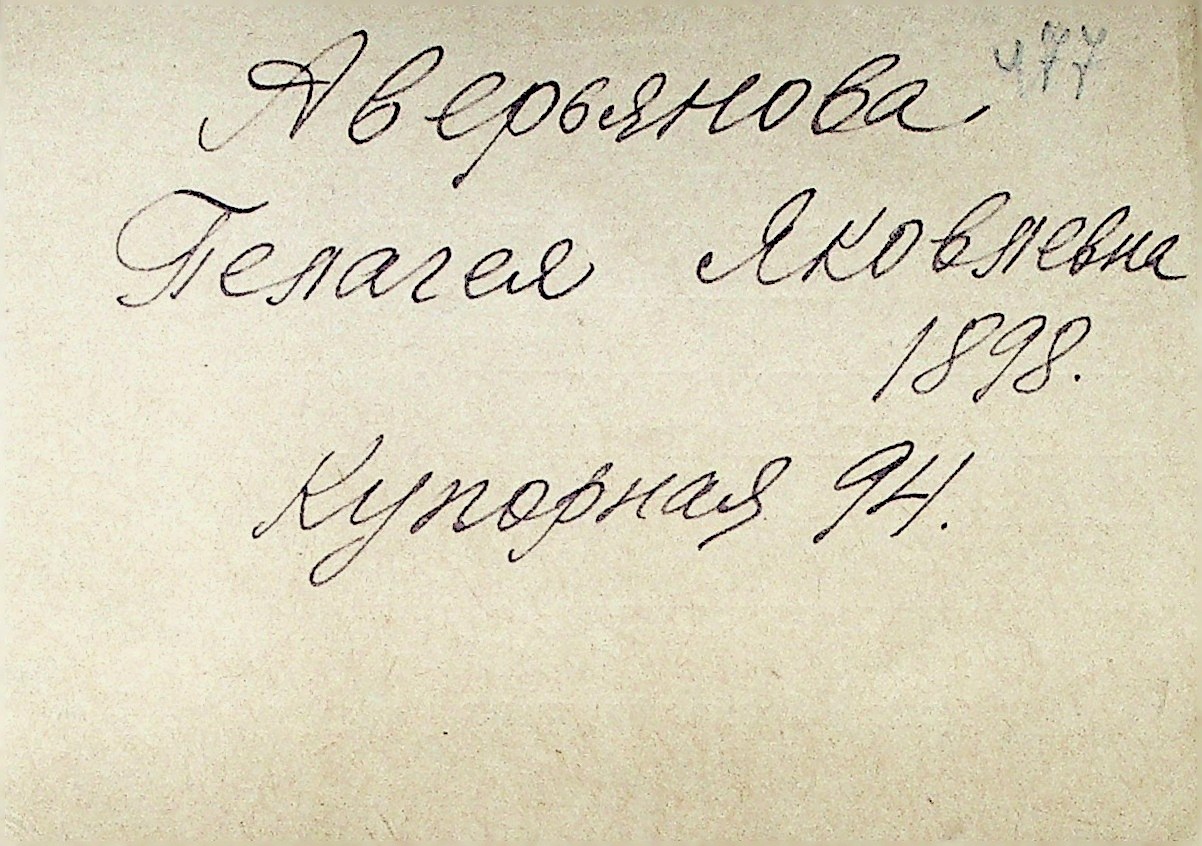 477
Аверьянова
Пелагея Яковлевна
1898.
Купорная 94.